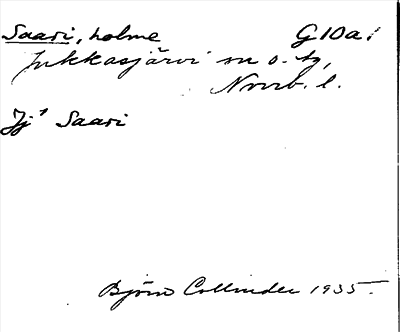 Saari, holme G10a;
Jukkasjärvi sn o. tg,
Norrb. l.
Jj¹ Saari
Björn Collinder 1935.